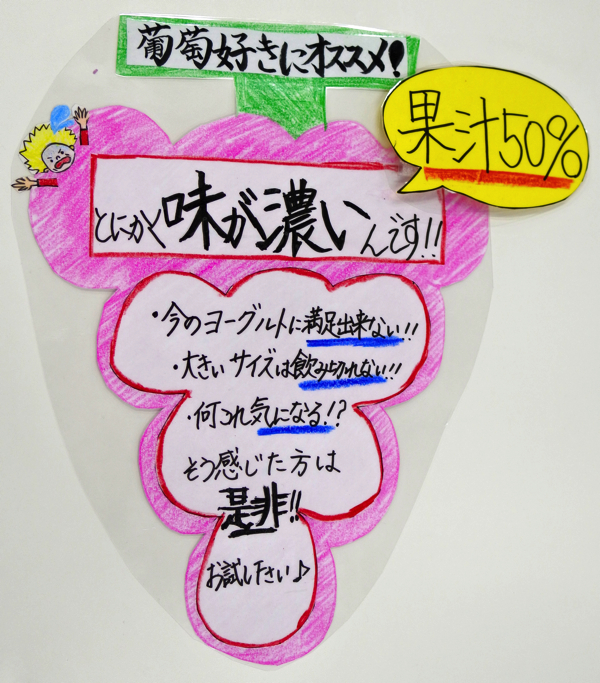 葡萄好きにオススメ!
果汁50%
とにかく味が濃いんです!!
・今のヨーグルトに満足出来ない!!
・大きいサイズは飲み切れない!!
・何これ気になる!?
そう感じた方は
是非!!
お試したさい♪